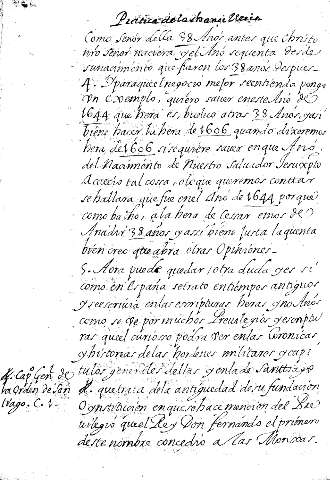 Practica de la
Como Señor della 38 Años antes que Christo
nro Señor naciera, y el Año sesenta desde
su nacimiento que fueron los 38 años despues
4. Y para que el negocio mejor se entienda pongo
un Exemplo, quiero saver en este Año de
1644 que hera es, busco otros 38 Años, y asi
biene haser la hera de 1606, quando dixeremos
hera de 1606 si se quisre saver en que Año
del Nacimiento de Nuestro Salvador Jesuxpto
Acaecio tal cossa, o lo que queremos contar
se hallara que fue en el Año de 1644 porque
como ha dho, a la hera de Cesar emos de
Añadir 38 años y assi biene justa la quenta
bien creo que abra otras Opiniones.
5. Aora puede quedar otra duda y es si
como en España se trato en tiempos antiguos
y se escrivia en las escripturas heras y no Años
como se ve por muchos Previlegios y escriptu
ras que el curioso podra ver en las Coronicas
y historias de las hordenes militares y capi
tulos generales dellas y en la de Santiago
que trata de la antiguedad de su fundación
O ynstitucion en que se hace mencion del Pre
vilegio que el Rey Don fernando el primero
deste nombre concedio a las Monxas.
Capo. Genl. de
la Orden de San
tiago. C. 1.